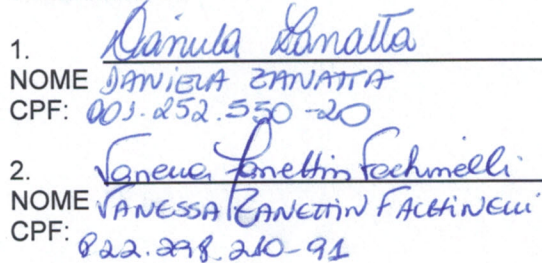 1. Daniela Zanatta
NOME DANIELA ZANATTA
CPF: 003.252.550-20
2. Vanessa Zanettin Fachinelli
NOME VANESSA ZANETTIN FACHINELLI
CPF: 822.298.210-91